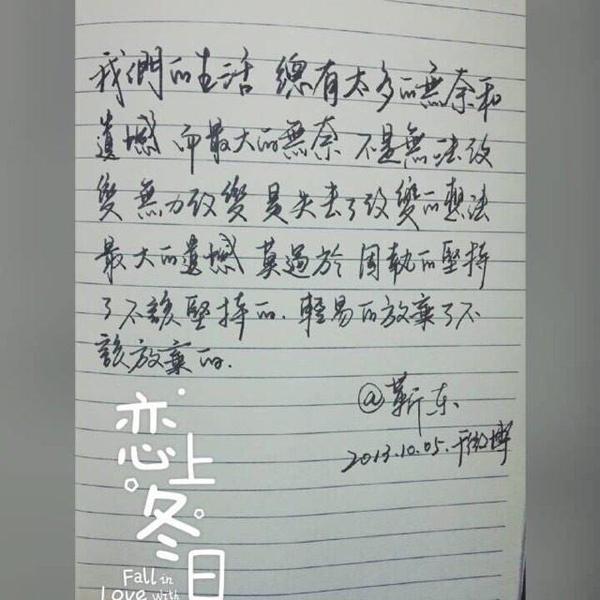 我們的生活 總有太多的無奈和
遺憾 而最大的無奈 不是無法改
變 無力改變 是失去了改變的想法
最大的遺憾 莫過於 固執的堅持
了不該堅持的. 輕易的放棄了不
該放棄的.
@靳东
2013.10.05.于微博
恋上
冬日
Fall in
Love with